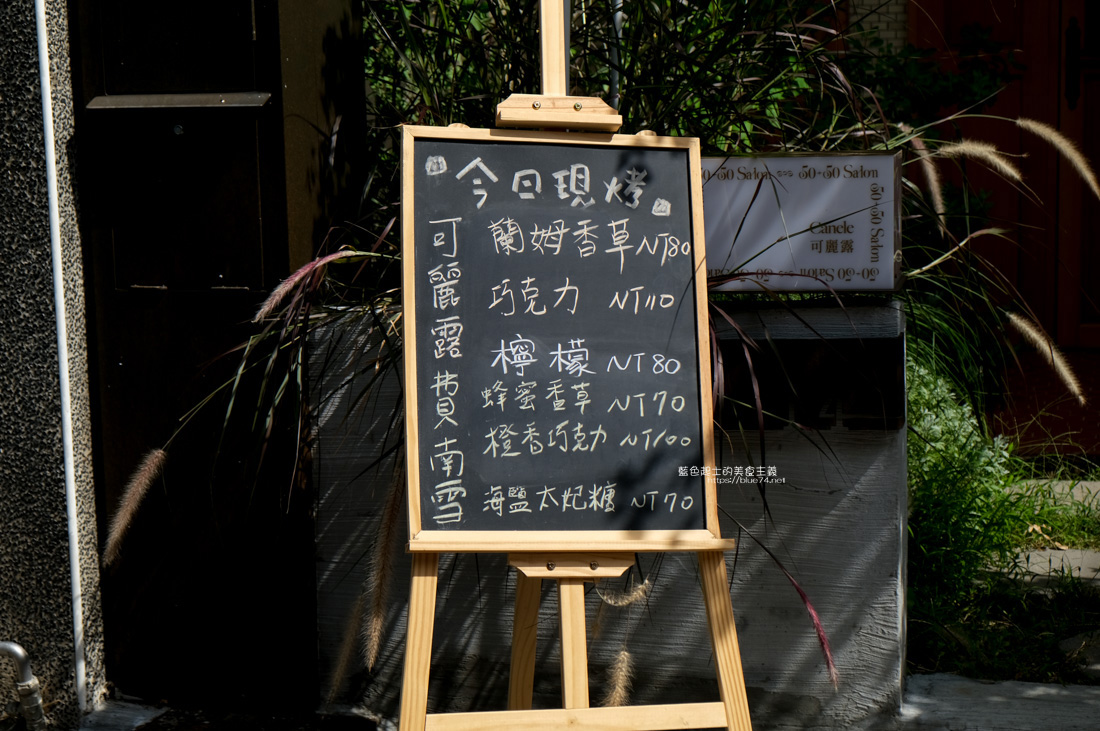 今日現烤
可麗露
蘭姆香草NT80
巧克力 NT110
檸檬 NT80
費南雪
蜂蜜香草 NT70
橙香巧克力 NT100
海鹽太妃糖 NT70
50-50 Salon 50-50 Salon
50-50 Salon
Canele
可麗露
50-50 Salon
藍色起士的美食主義
https://blue74.net